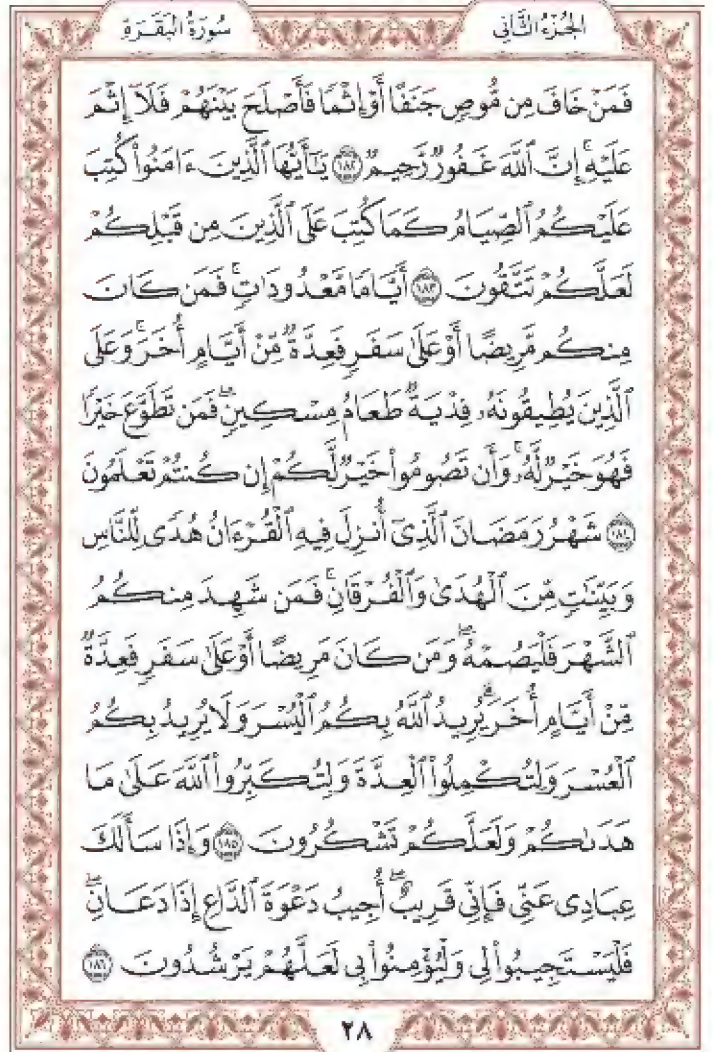 الجُزْءُ الثَّانِي
سُورَةُ الْبَقَرَةِ
فَمَنْ خَافَ مِن مُّوصٍ جَنَفًا أَوْ إِثْمًا فَأَصْلَحَ بَيْنَهُمْ فَلَآ إِثْمَ
عَلَيْهِۚ إِنَّ ٱللَّهَ غَفُورٌ رَّحِيمٌ ١٨٢ يَـٰٓأَيُّهَا ٱلَّذِينَ ءَامَنُوا۟ كُتِبَ
عَلَيْكُمُ ٱلصِّيَامُ كَمَا كُتِبَ عَلَى ٱلَّذِينَ مِن قَبْلِكُمْ
لَعَلَّكُمْ تَتَّقُونَ ١٨٣ أَيَّامًا مَّعْدُودَاتٍۚ فَمَن كَانَ
مِنكُم مَّرِيضًا أَوْ عَلَىٰ سَفَرٍ فَعِدَّةٌ مِّنْ أَيَّامٍ أُخَرَۚ وَعَلَى
ٱلَّذِينَ يُطِيقُونَهُۥ فِدْيَةٌ طَعَامُ مِسْكِينٍۖ فَمَن تَطَوَّعَ خَيْرًا
فَهُوَ خَيْرٌ لَّهُۥۚ وَأَن تَصُومُوا۟ خَيْرٌ لَّكُمْ إِن كُنتُمْ تَعْلَمُونَ
١٨٤ شَهْرُ رَمَضَانَ ٱلَّذِىٓ أُنزِلَ فِيهِ ٱلْقُرْءَانُ هُدًى لِّلنَّاسِ
وَبَيِّنَـٰتٍ مِّنَ ٱلْهُدَىٰ وَٱلْفُرْقَانِۚ فَمَن شَهِدَ مِنكُمُ
ٱلشَّهْرَ فَلْيَصُمْهُۖ وَمَن كَانَ مَرِيضًا أَوْ عَلَىٰ سَفَرٍ فَعِدَّةٌ
مِّنْ أَيَّامٍ أُخَرَۗ يُرِيدُ ٱللَّهُ بِكُمُ ٱلْيُسْرَ وَلَا يُرِيدُ بِكُمُ
ٱلْعُسْرَ وَلِتُكْمِلُوا۟ ٱلْعِدَّةَ وَلِتُكَبِّرُوا۟ ٱللَّهَ عَلَىٰ مَا
هَدَىٰكُمْ وَلَعَلَّكُمْ تَشْكُرُونَ ١٨٥ وَإِذَا سَأَلَكَ
عِبَادِى عَنِّى فَإِنِّى قَرِيبٌۖ أُجِيبُ دَعْوَةَ ٱلدَّاعِ إِذَا دَعَانِۖ
فَلْيَسْتَجِيبُوا۟ لِى وَلْيُؤْمِنُوا۟ بِى لَعَلَّهُمْ يَرْشُدُونَ ١٨٦
٢٨